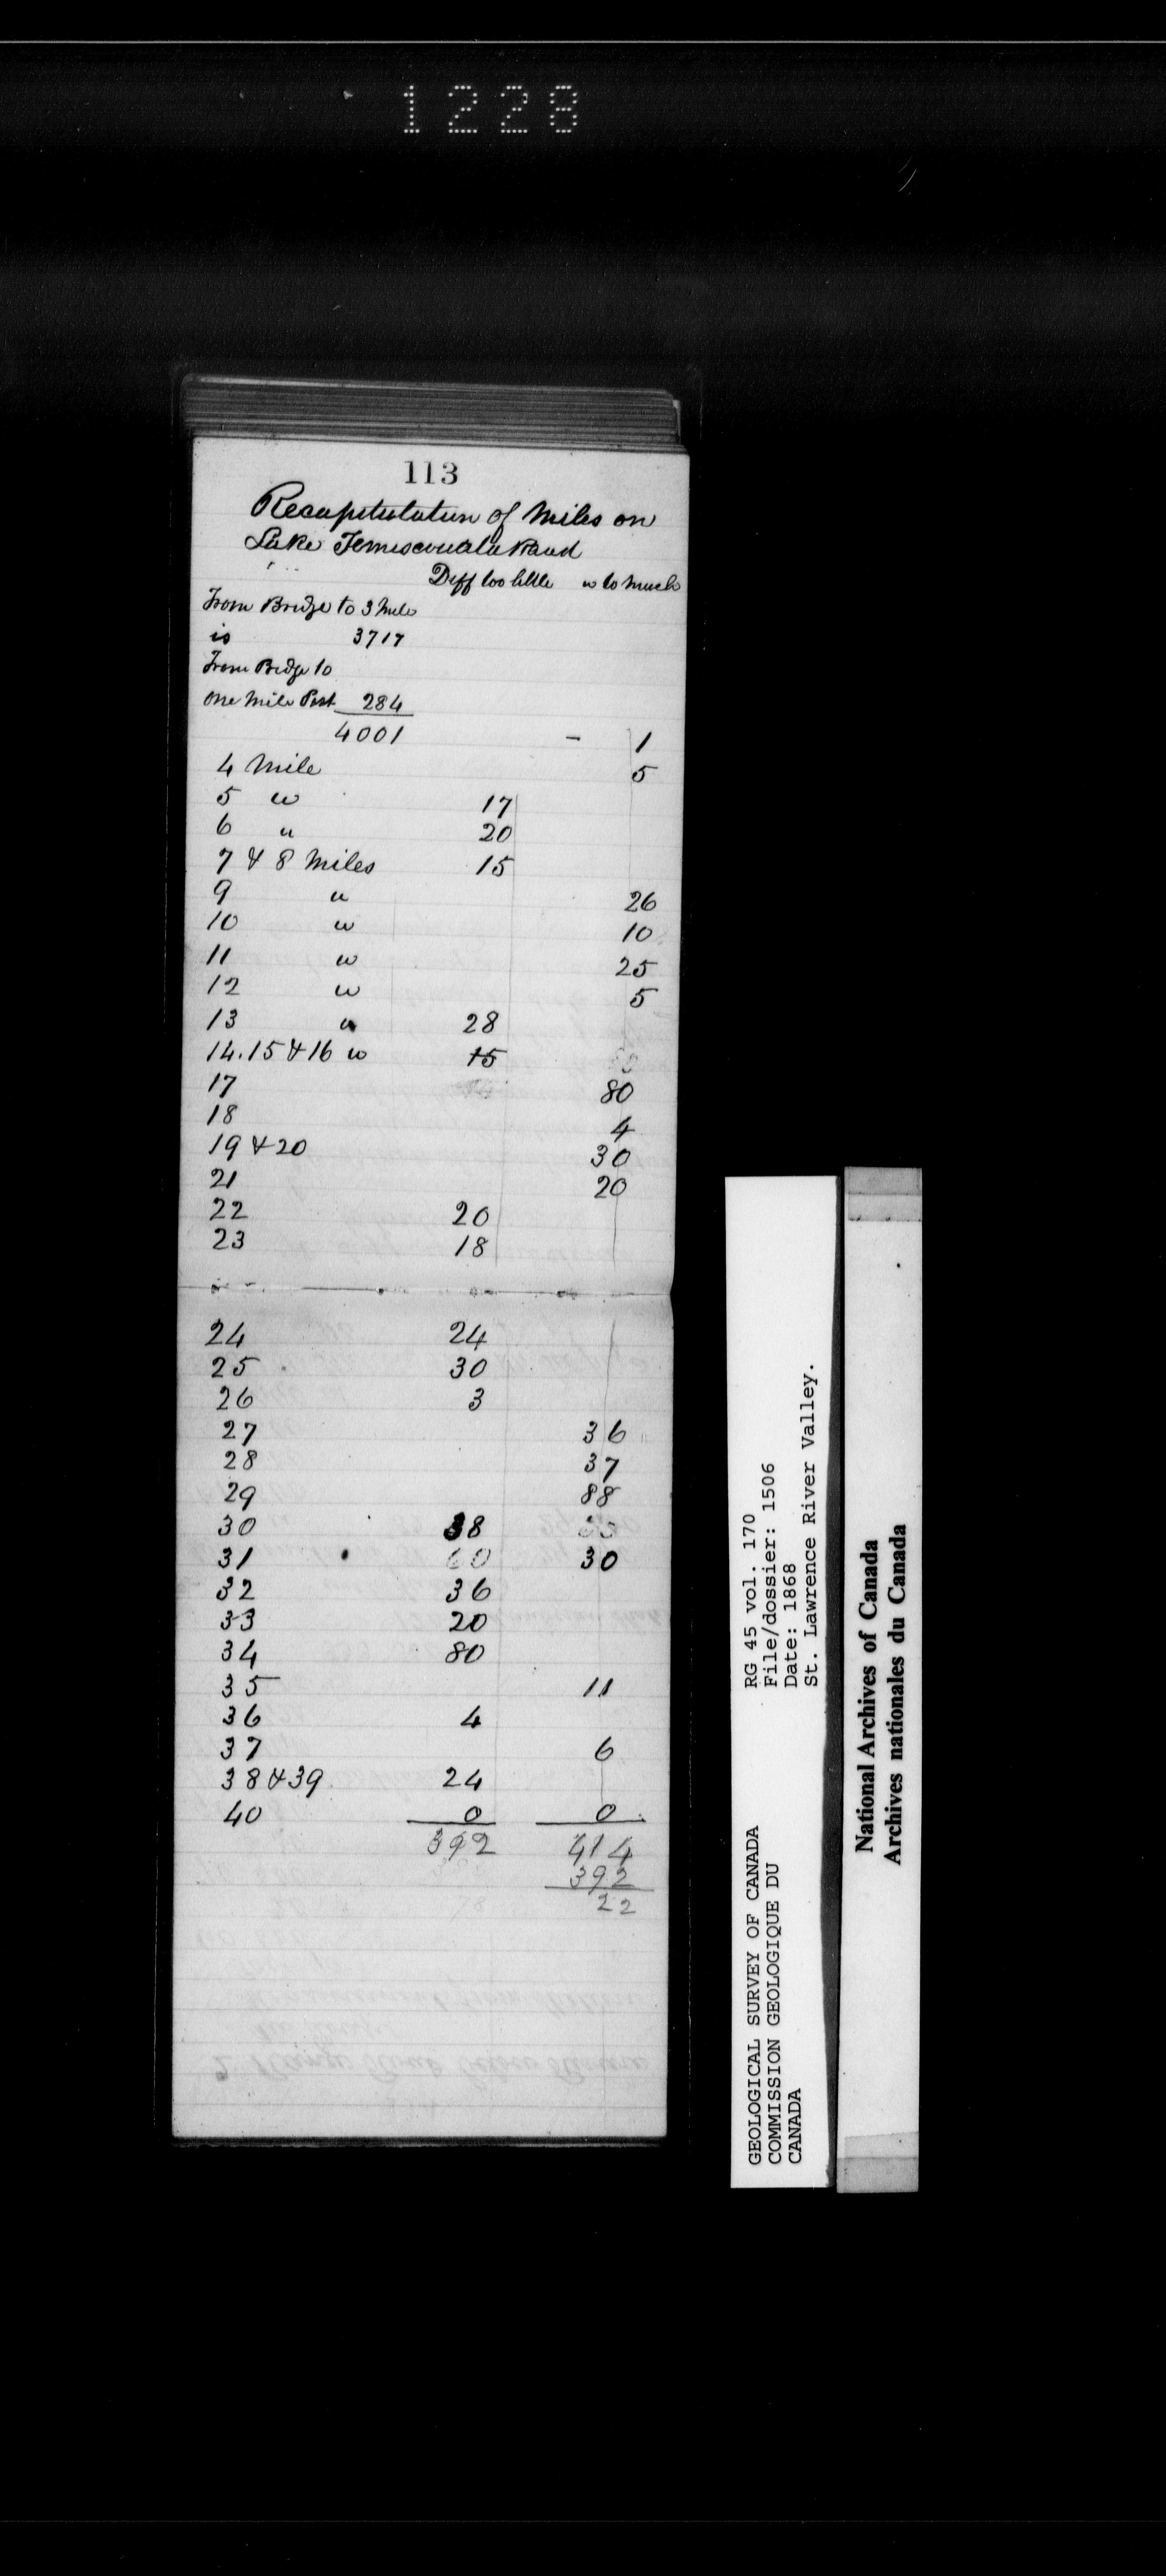 1228
113
Recapitulation of Miles on
Lake Temiscouata Road
Diff too little " to much
From Bridge to 3 Mile
is 3717
From Bridge to
one Mile Post 284
4001 - 1
4 Mile 5
5 " 17
6 " 20
7 & 8 Miles 15
9 " 26
10 " 10
11 " 25
12 " 5
13 " 28
14.15 & 16 " 15
17 80
18 4
19 & 20 30
21 20
22 20
23 18
24 24
25 30
26 3
27 36
28 37
29 88
30 38
31 30
32 36
33 20
34 80
35 11
36 4
37 6
38 & 39 24
40 0 0
392 414
392
22
GEOLOGICAL SURVEY OF CANADA
COMMISSION GEOLOGIQUE DU
CANADA
RG 45 vol. 170
File/dossier: 1506
Date: 1868
St. Lawrence River Valley.
National Archives of Canada
Archives nationales du Canada